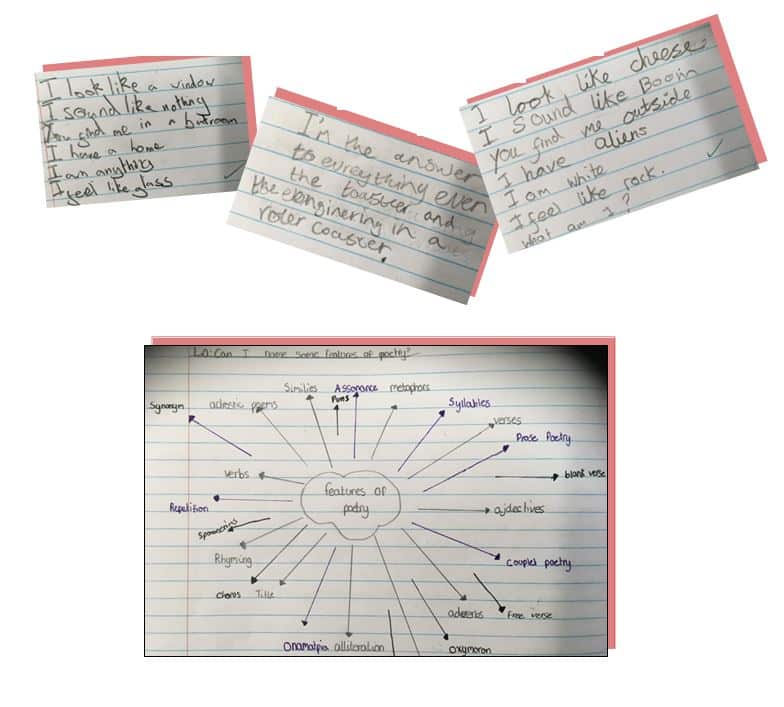 I look like a window
I sound like nothing
You find me in a batroom
I have a home
I am anything
I feel like glass
I'm the answer
to evreything even
the toaster and
the enginering in a
roler coaster.
I look like cheese
I sound like Boom
you find me outside
I have aliens
I am white
I feel like rock.
what am I?
LO: Can I name some features of poetry?
Similies
Assonance
metaphors
Puns
Synonym
acrostic poems
Syllables
verses
Prose Poetry
verbs
blank verse
features of
poetry
Repetition
ajdectives
Rhyming
Couplet poetry
chorus
Title
adverbs
Free verse
Onamatpia
alliteration
oxymoron